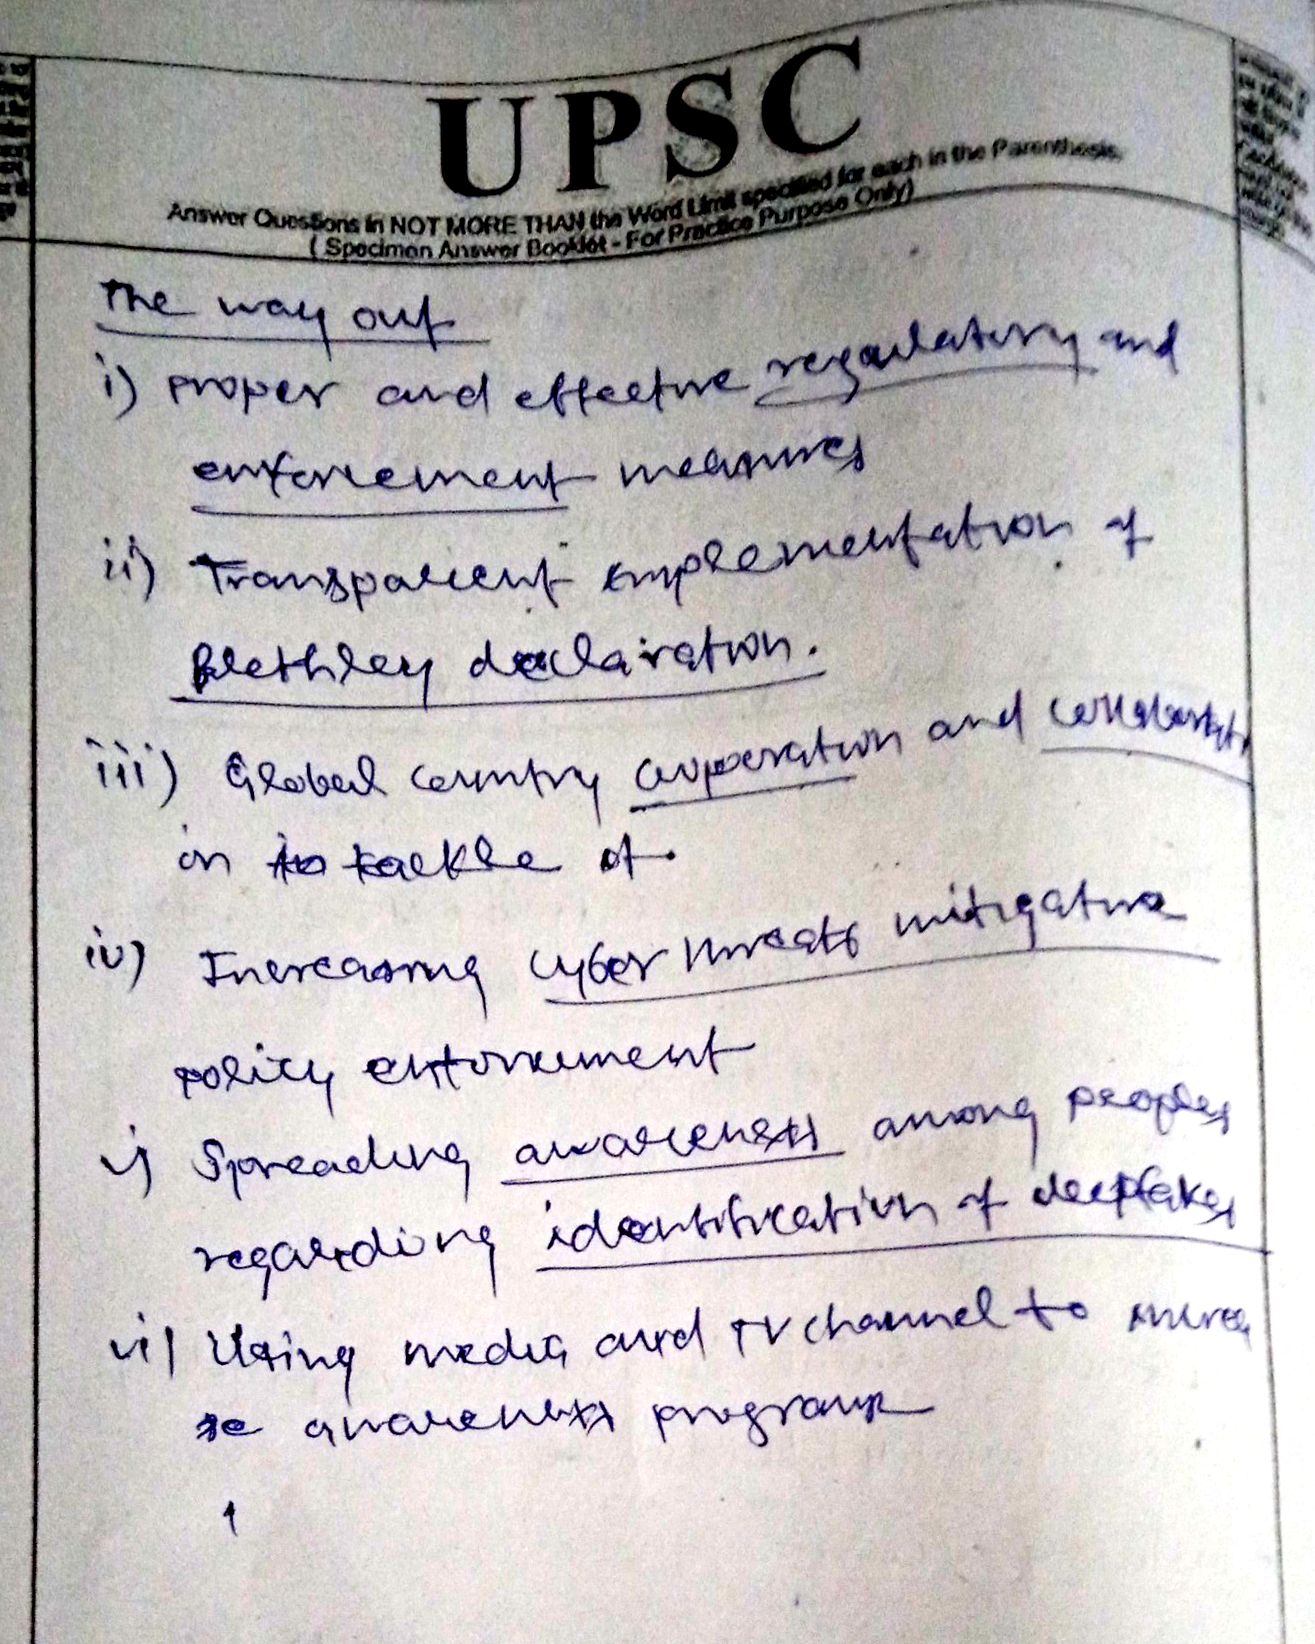 UPSC
Answer Questions in NOT MORE THAN the Word Limit specified for each in the Parenthesis.
( Specimen Answer Booklet - For Practice Purpose Only)
The way out
i) proper and effective regulatory and
enforcement measures
ii) Transparent implementation of
Blethley declaration.
iii) Global country cooperation and
in to tackle of.
iv) Increasing cyber threats mitigative
policy enforcement
v) Spreading awareness among peoples
regarding identification of deepfakes
vi) Using media and TV channel to increa
se awareness programe